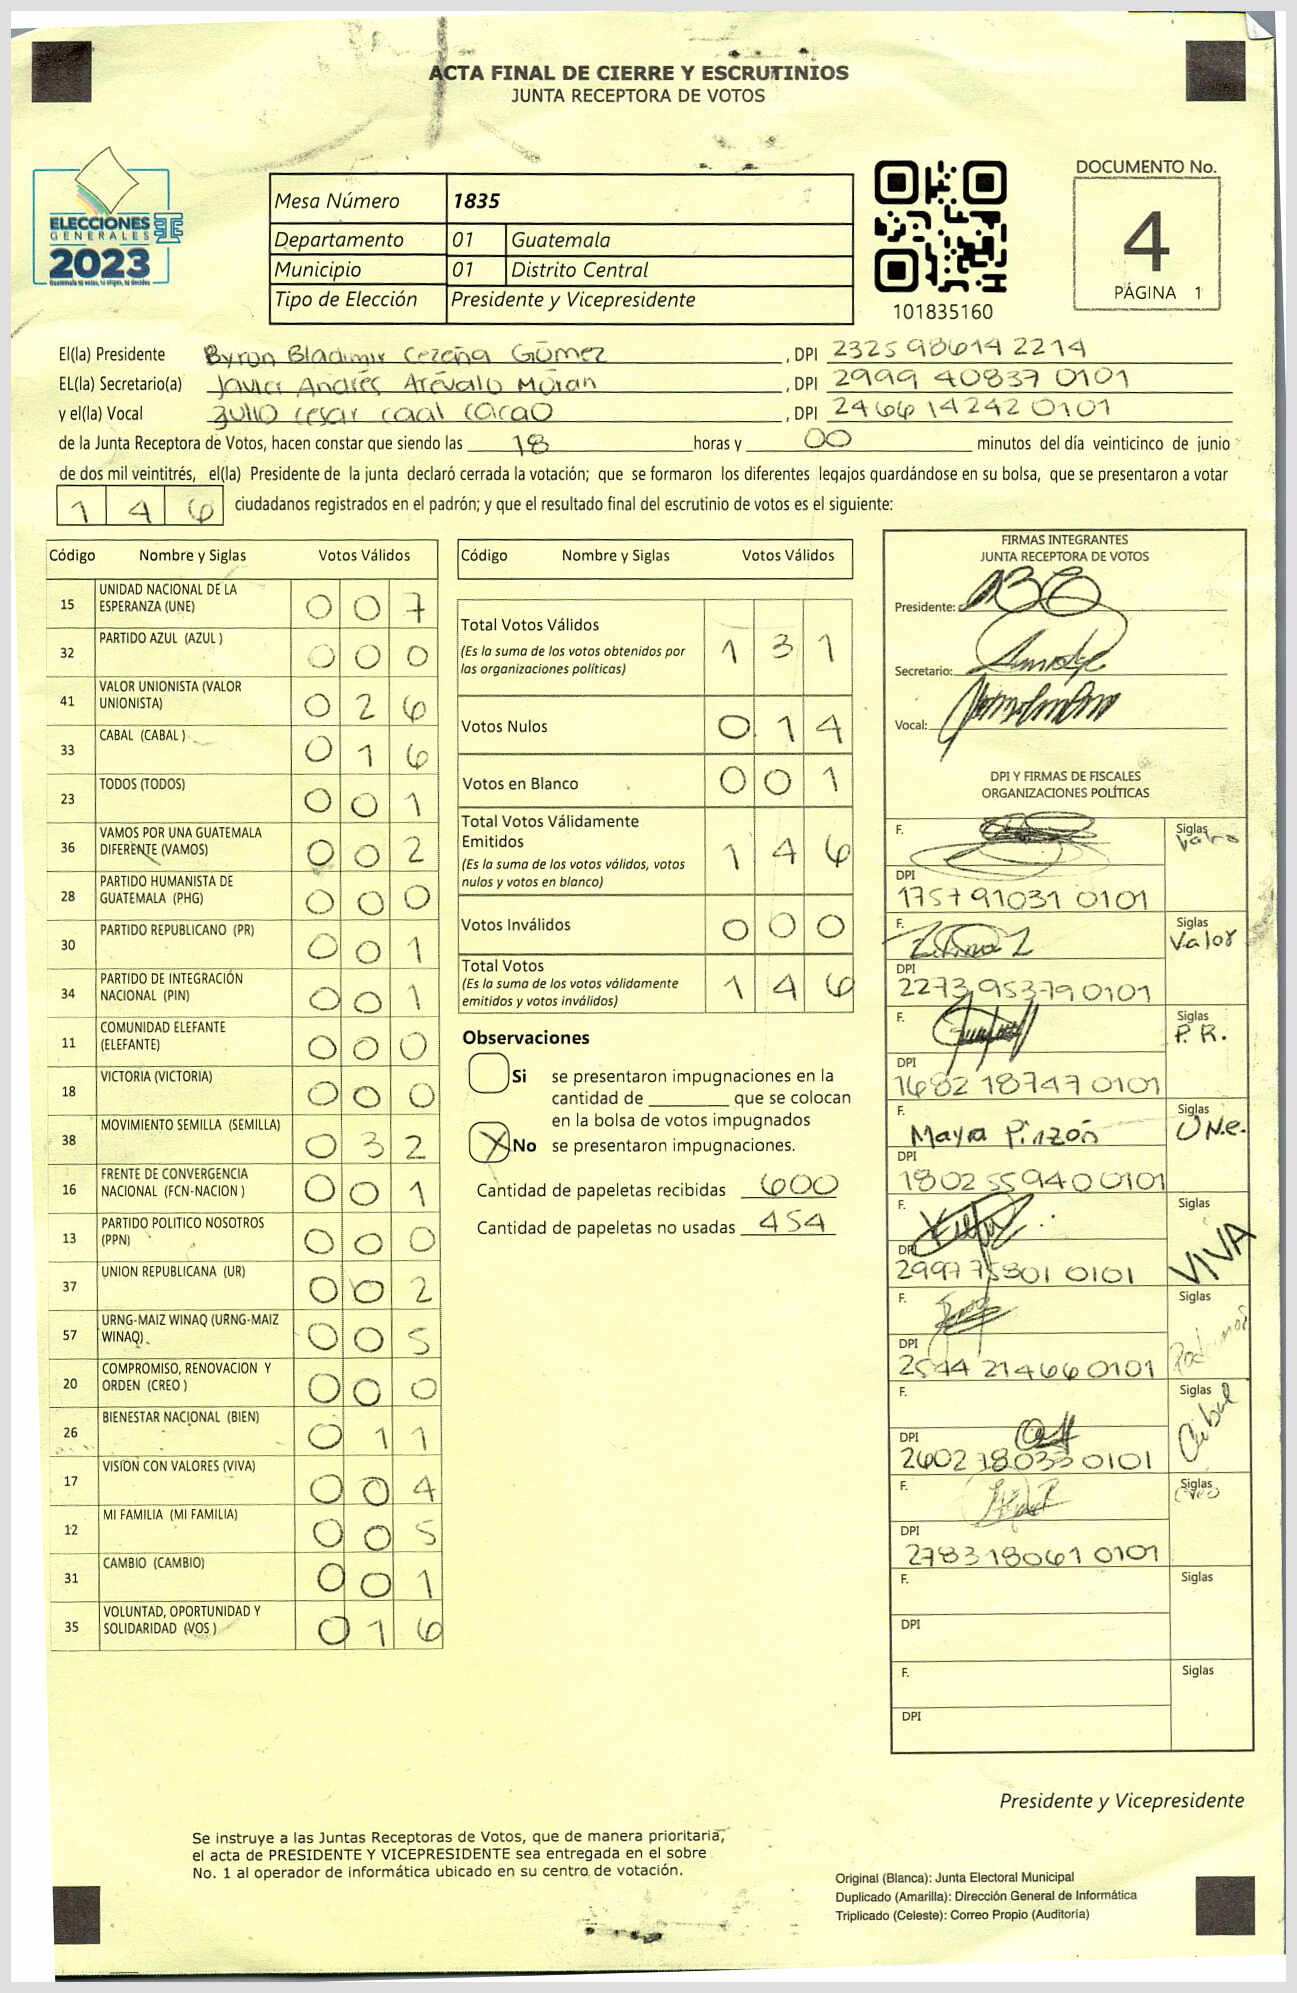 ACTA FINAL DE CIERRE Y ESCRUTINIOS
JUNTA RECEPTORA DE VOTOS
ELECCIONES
GENERALES
2023
Mesa Número 1835
Departamento 01 Guatemala
Municipio 01 Distrito Central
Tipo de Elección Presidente y Vicepresidente
101835160
DOCUMENTO No.
4
PÁGINA 1
El(la) Presidente Byron Bladimir Cezeña Gómez, DPI 2325 98614 2214
EL(la) Secretario(a) Javier Andrés Arévalo Morán, DPI 2999 40837 0101
y el(la) Vocal Julio Cesar Caal Cacao, DPI 2466 14242 0101
de la Junta Receptora de Votos, hacen constar que siendo las 18 horas y 00 minutos del día veinticinco de junio
de dos mil veintitrés, el(la) Presidente de la junta declaró cerrada la votación; que se formaron los diferentes legajos guardándose en su bolsa, que se presentaron a votar
146 ciudadanos registrados en el padrón; y que el resultado final del escrutinio de votos es el siguiente:
Código Nombre y Siglas Votos Válidos
15 UNIDAD NACIONAL DE LA ESPERANZA (UNE) 0 0 7
32 PARTIDO AZUL (AZUL ) 0 0 0
41 VALOR UNIONISTA (VALOR UNIONISTA) 0 2 6
33 CABAL (CABAL ) 0 1 6
23 TODOS (TODOS) 0 0 1
36 VAMOS POR UNA GUATEMALA DIFERENTE (VAMOS) 0 0 2
28 PARTIDO HUMANISTA DE GUATEMALA (PHG) 0 0 0
30 PARTIDO REPUBLICANO (PR) 0 0 1
34 PARTIDO DE INTEGRACIÓN NACIONAL (PIN) 0 0 1
11 COMUNIDAD ELEFANTE (ELEFANTE) 0 0 0
18 VICTORIA (VICTORIA) 0 0 0
38 MOVIMIENTO SEMILLA (SEMILLA) 0 3 2
16 FRENTE DE CONVERGENCIA NACIONAL (FCN-NACION ) 0 0 1
13 PARTIDO POLITICO NOSOTROS (PPN) 0 0 0
37 UNION REPUBLICANA (UR) 0 0 2
57 URNG-MAIZ WINAQ (URNG-MAIZ WINAQ) 0 0 5
20 COMPROMISO, RENOVACION Y ORDEN (CREO ) 0 0 0
26 BIENESTAR NACIONAL (BIEN) 0 1 1
17 VISION CON VALORES (VIVA) 0 0 4
12 MI FAMILIA (MI FAMILIA) 0 0 5
31 CAMBIO (CAMBIO) 0 0 1
35 VOLUNTAD, OPORTUNIDAD Y SOLIDARIDAD (VOS ) 0 1 6
Código Nombre y Siglas Votos Válidos
Total Votos Válidos 1 3 1
(Es la suma de los votos obtenidos por
las organizaciones políticas)
Votos Nulos 0 1 4
Votos en Blanco 0 0 1
Total Votos Válidamente
Emitidos 1 4 6
(Es la suma de los votos válidos, votos
nulos y votos en blanco)
Votos Inválidos 0 0 0
Total Votos 1 4 6
(Es la suma de los votos válidamente
emitidos y votos inválidos)
Observaciones
Si se presentaron impugnaciones en la
cantidad de ________ que se colocan
en la bolsa de votos impugnados
X No se presentaron impugnaciones.
Cantidad de papeletas recibidas 600
Cantidad de papeletas no usadas 454
FIRMAS INTEGRANTES
JUNTA RECEPTORA DE VOTOS
Presidente:
Secretario:
Vocal:
DPI Y FIRMAS DE FISCALES
ORGANIZACIONES POLÍTICAS
F. Siglas
DPI 1757 91031 0101
F. Siglas Valor
DPI 2273 95379 0101
F. Siglas P.R.
DPI 1682 18747 0101
F. Mayra Pinzón Siglas UNe.
DPI 1802 55940 0101
F. Siglas VIVA
DPI 2997 75801 0101
F. Siglas
DPI 2544 21466 0101
F. Siglas Cabal
DPI 2602 18033 0101
F. Siglas
DPI 2783 18061 0101
F. Siglas
DPI
F. Siglas
DPI
Presidente y Vicepresidente
Se instruye a las Juntas Receptoras de Votos, que de manera prioritaria,
el acta de PRESIDENTE Y VICEPRESIDENTE sea entregada en el sobre
No. 1 al operador de informática ubicado en su centro de votación.
Original (Blanca): Junta Electoral Municipal
Duplicado (Amarilla): Dirección General de Informática
Triplicado (Celeste): Correo Propio (Auditoría)